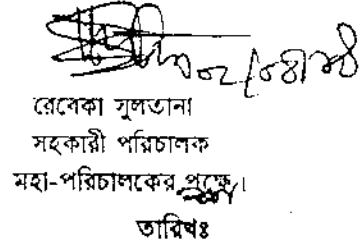 ০২/০৪/১৪
রেবেকা সুলতানা
সহকারী পরিচালক
মহা-পরিচালকের পক্ষে।
তারিখঃ